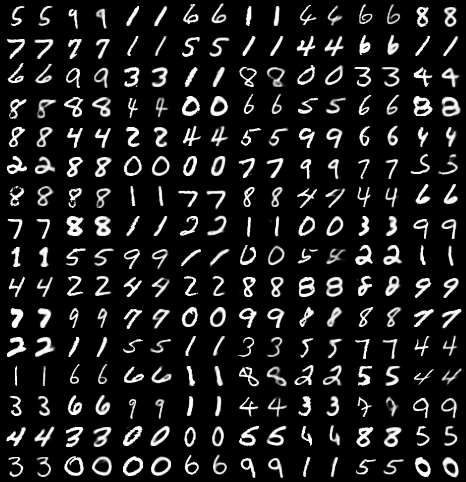 5 5 9 9 1 1 6 6 1 1 6 6 8 8
7 7 7 7 1 1 5 5 1 1 4 4 6 6 1 1
6 6 9 9 3 3 1 1 8 8 0 0 3 3 4 4
8 8 8 8 4 4 0 0 6 6 5 5 6 6 8 8
8 8 4 4 2 2 4 4 5 5 9 9 6 6 4 4
2 2 8 8 0 0 0 0 7 7 9 9 7 7 5 5
8 8 8 8 1 1 7 7 8 8 4 4 6 6
7 7 8 8 1 1 2 2 1 1 0 0 3 3 9 9
1 1 5 5 9 9 1 1 0 0 5 2 2 1 1
4 4 2 2 4 4 2 2 8 8 8 8 8 8 9 9
7 7 9 9 7 7 0 0 9 9 8 8 8 8 7 7
2 2 1 1 5 5 1 1 3 3 5 5 7 7 4 4
1 1 6 6 6 6 1 1 8 8 2 2 5 5 4 4
3 3 6 6 9 9 1 1 4 4 3 3 9 9
4 4 3 3 0 0 0 0 5 5 4 4 8 8 5 5
3 3 0 0 0 0 6 6 9 9 1 1 5 5 0 0